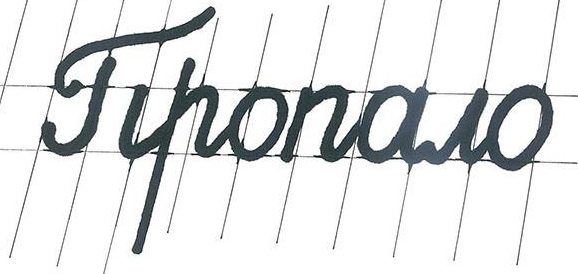 Пропало